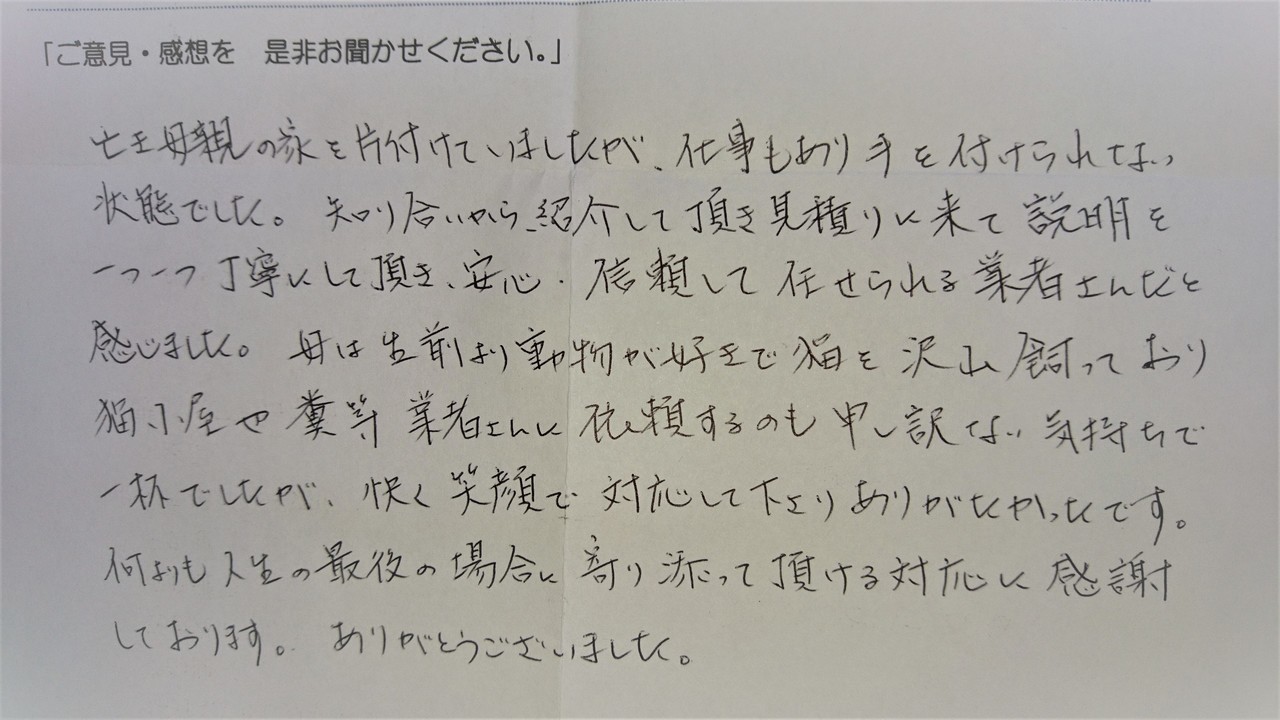 「ご意見・感想を 是非お聞かせください。」
亡き母親の家を片付けていましたが、仕事もあり手を付けられない
状態でした。知り合いから紹介して頂き見積りに来て説明を
一つ一つ丁寧にして頂き、安心・信頼して任せられる業者さんだと
感じました。母は生前より動物が好きで猫を沢山飼っており
猫小屋や糞等業者さんに依頼するのも申し訳ない気持ちで
一杯でしたが、快く笑顔で対応して下さりありがたかったです。
何よりも人生の最後の場合に寄り添って頂ける対応に感謝
しております。ありがとうございました。